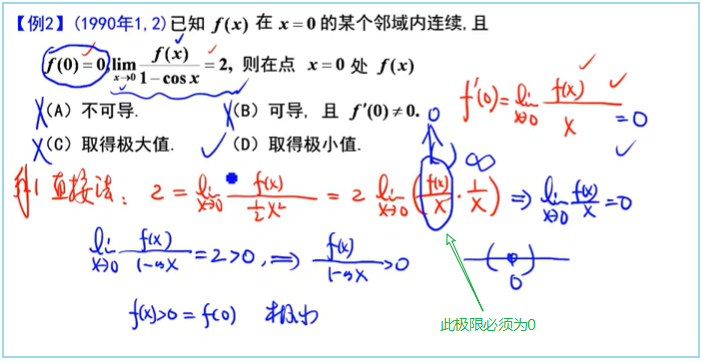 【例2】(1990年1,2)已知 f(x) 在 x=0 的某个邻域内连续,且
f(0)=0, lim_{x→0} f(x)/(1-cos x) = 2, 则在点 x=0 处 f(x)
(A) 不可导. (B) 可导, 且 f'(0)≠0.
(C) 取得极大值. (D) 取得极小值.
f'(0) = lim_{x→0} f(x)/x = 0
0
∞
直接法: 2 = lim_{x→0} f(x)/(½x²) = 2 lim_{x→0} (f(x)/x · 1/x) ⇒ lim_{x→0} f(x)/x = 0
lim_{x→0} f(x)/(1-cosx) = 2 > 0, ⇒ f(x)/(1-cosx) > 0
0
f(x)>0 = f(0) 极小
此极限必须为0